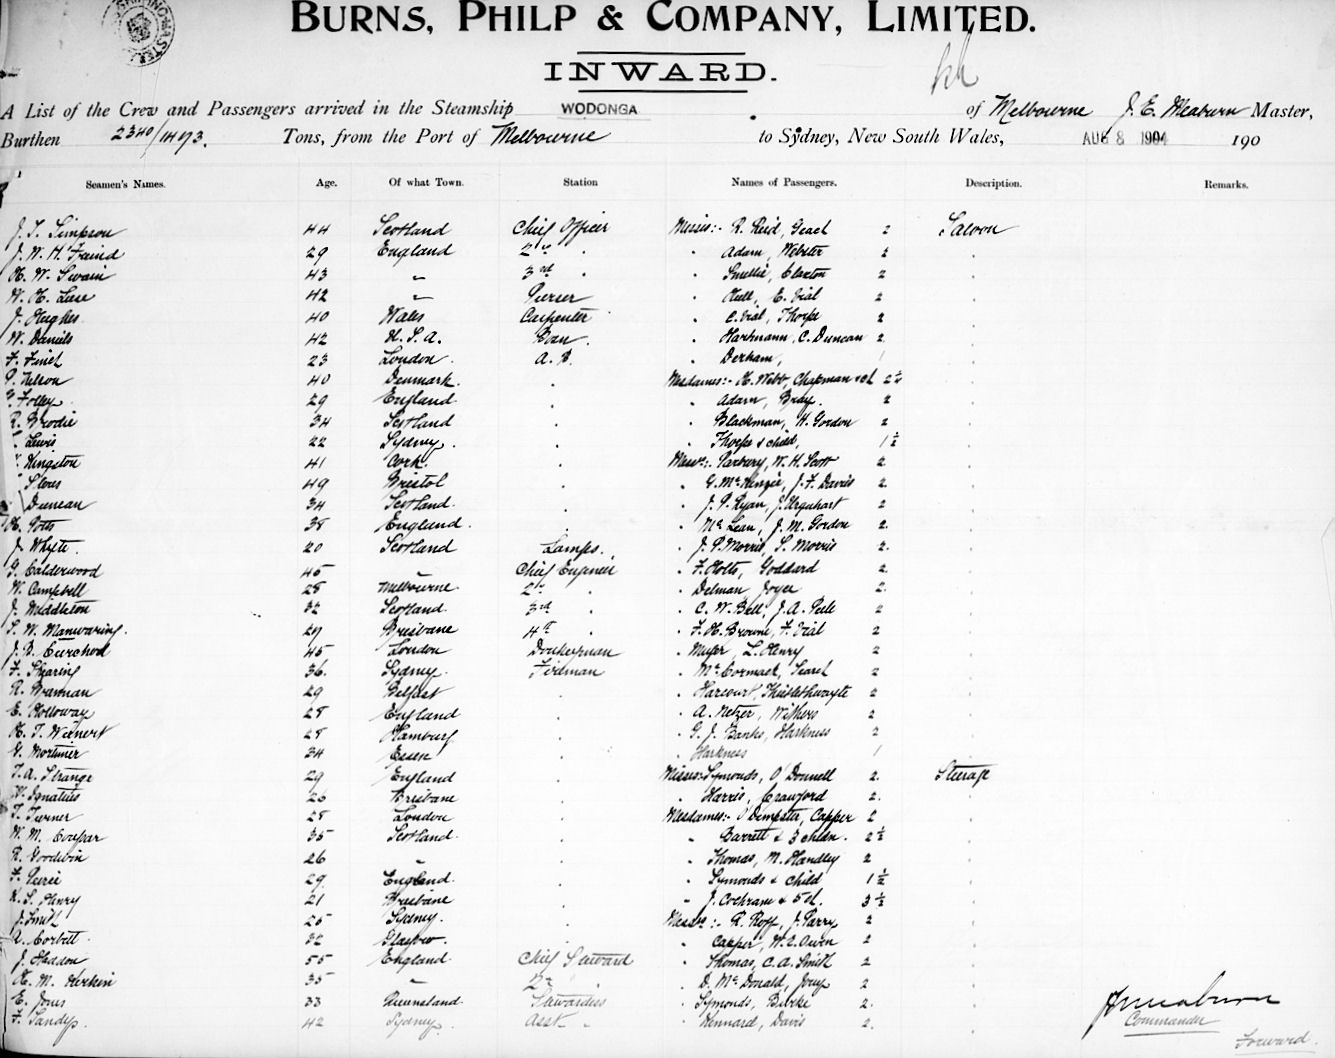 BURNS, PHILP & COMPANY, LIMITED.
INWARD.
A List of the Crew and Passengers arrived in the Steamship WODONGA of Melbourne J. E. Meaburn Master,
Burthen 2340/1473. Tons, from the Port of Melbourne to Sydney, New South Wales, AUG 8 1904 190
Seamen's Names. Age. Of what Town. Station Names of Passengers. Description. Remarks.
J. T. Simpson 44 Scotland Chief Officer Misses:- R. Reid, Geach 2 Saloon
J. W. H. 29 England 2nd " Adam, Webster 2
H. W. Swain 43 " 3rd " Smellie, Claxton 2
W. H. 42 " Purser " Hull, E. Vial 2
J. Hughes 40 Wales Carpenter " C. Vial, Thorpe 2
W. Daniels 42 U. S. A. Bosn. " Hartmann, C. Duncan 2
F. Finch 23 London A. B. " Derham, 1
P. Nelson 40 Denmark. " Mesdames:- H. Webb, Chapman & ch 2½
Folley 29 England " Adam, Bray. 2
R. Brodie 34 Scotland " Blackman, W. Gordon 2
Lewis 22 Sydney. " Thorpe & child, 1½
Kingston 41 Cork. " Messrs:- Parbury, W. H. Scott 2
49 Bristol " G. McKenzie, J. F. Davies 2
Duncan 34 Scotland. " J. P. Ryan, J. Urquhart 2
H. Potts 38 England. " McLean, J. M. Gordon 2
J. Whyte. 20 Scotland Lamps. " J. P. Morris, S. Morris 2
G. Calderwood 45 " Chief Engineer " F. Holts, Goddard 2
W. Campbell 28 Melbourne 2nd " Delman, Joyce 2
J. Middleton 32 Scotland 3rd " C. W. Bell, J. A. Peele 2
S. W. Manwaring. 29 Brisbane 4th " F. H. Browne, F. Vial 2
J. B. Curchod 45 London Donkeyman " Meyer, L. Henry 2
F. Shearing 36. Sydney. Fireman " McCormack, 2
R. Brannan 29 Belfast " Harcourt, Thistlethwayte 2
E. Holloway 28 England " A. Metzer, Withers 2
H. T. Wienert 28 Hamburg " G. J. Banks, Harkness 2
G. Mortimer 34 Essex " Harkness 1
T. A. Strange 29 England " Misses:- Symonds, O'Donnell 2. Steerage
W. Ignatius 26 Brisbane " Harris, Crawford 2.
T. Turner 28 London " Mesdames:- O'Dempster, Capper 2
W. M. Coupar 35 Scotland. " Barrett & 3 chldn. 2½
R. Goodwin 26 " Thomas, M. Handley 2
F. Peirce 29 England. " Symonds & Child 1½
H. S. Henry 21 Brisbane " J. Cochrane & 5 ch. 3½
J. Smith 25 Sydney. " Messrs:- R. Roff, J. Parry 2
A. Corbett 32 Glasgow. " Capper, W. L. Owen 2
J. Haddon 55 England Chief Steward " Thomas, C. A. Smith 2
H. M. 35 " 2nd " D. McDonald, 2
E. Jones 33 Queensland. Stewardess " Symonds, Burke 2.
F. Sandys. 42 Sydney. Asst. " Kennard, Davis 2.
J E Meaburn
Commander
Forward.